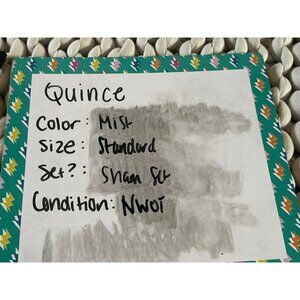 Quince
Color: Mist
Size: Standard
Set?: Sham Set
Condition: NWOT